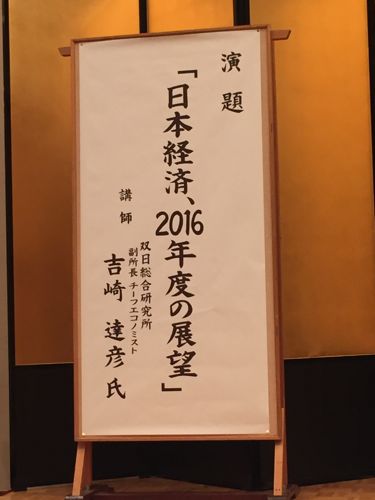 演題
「日本経済、2016年度の展望」
講師
双日総合研究所
副所長 チーフエコノミスト
吉崎 達彦 氏